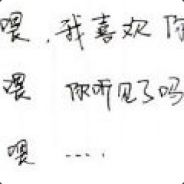 喂，我喜欢你
喂 你听见了吗
喂 ....,